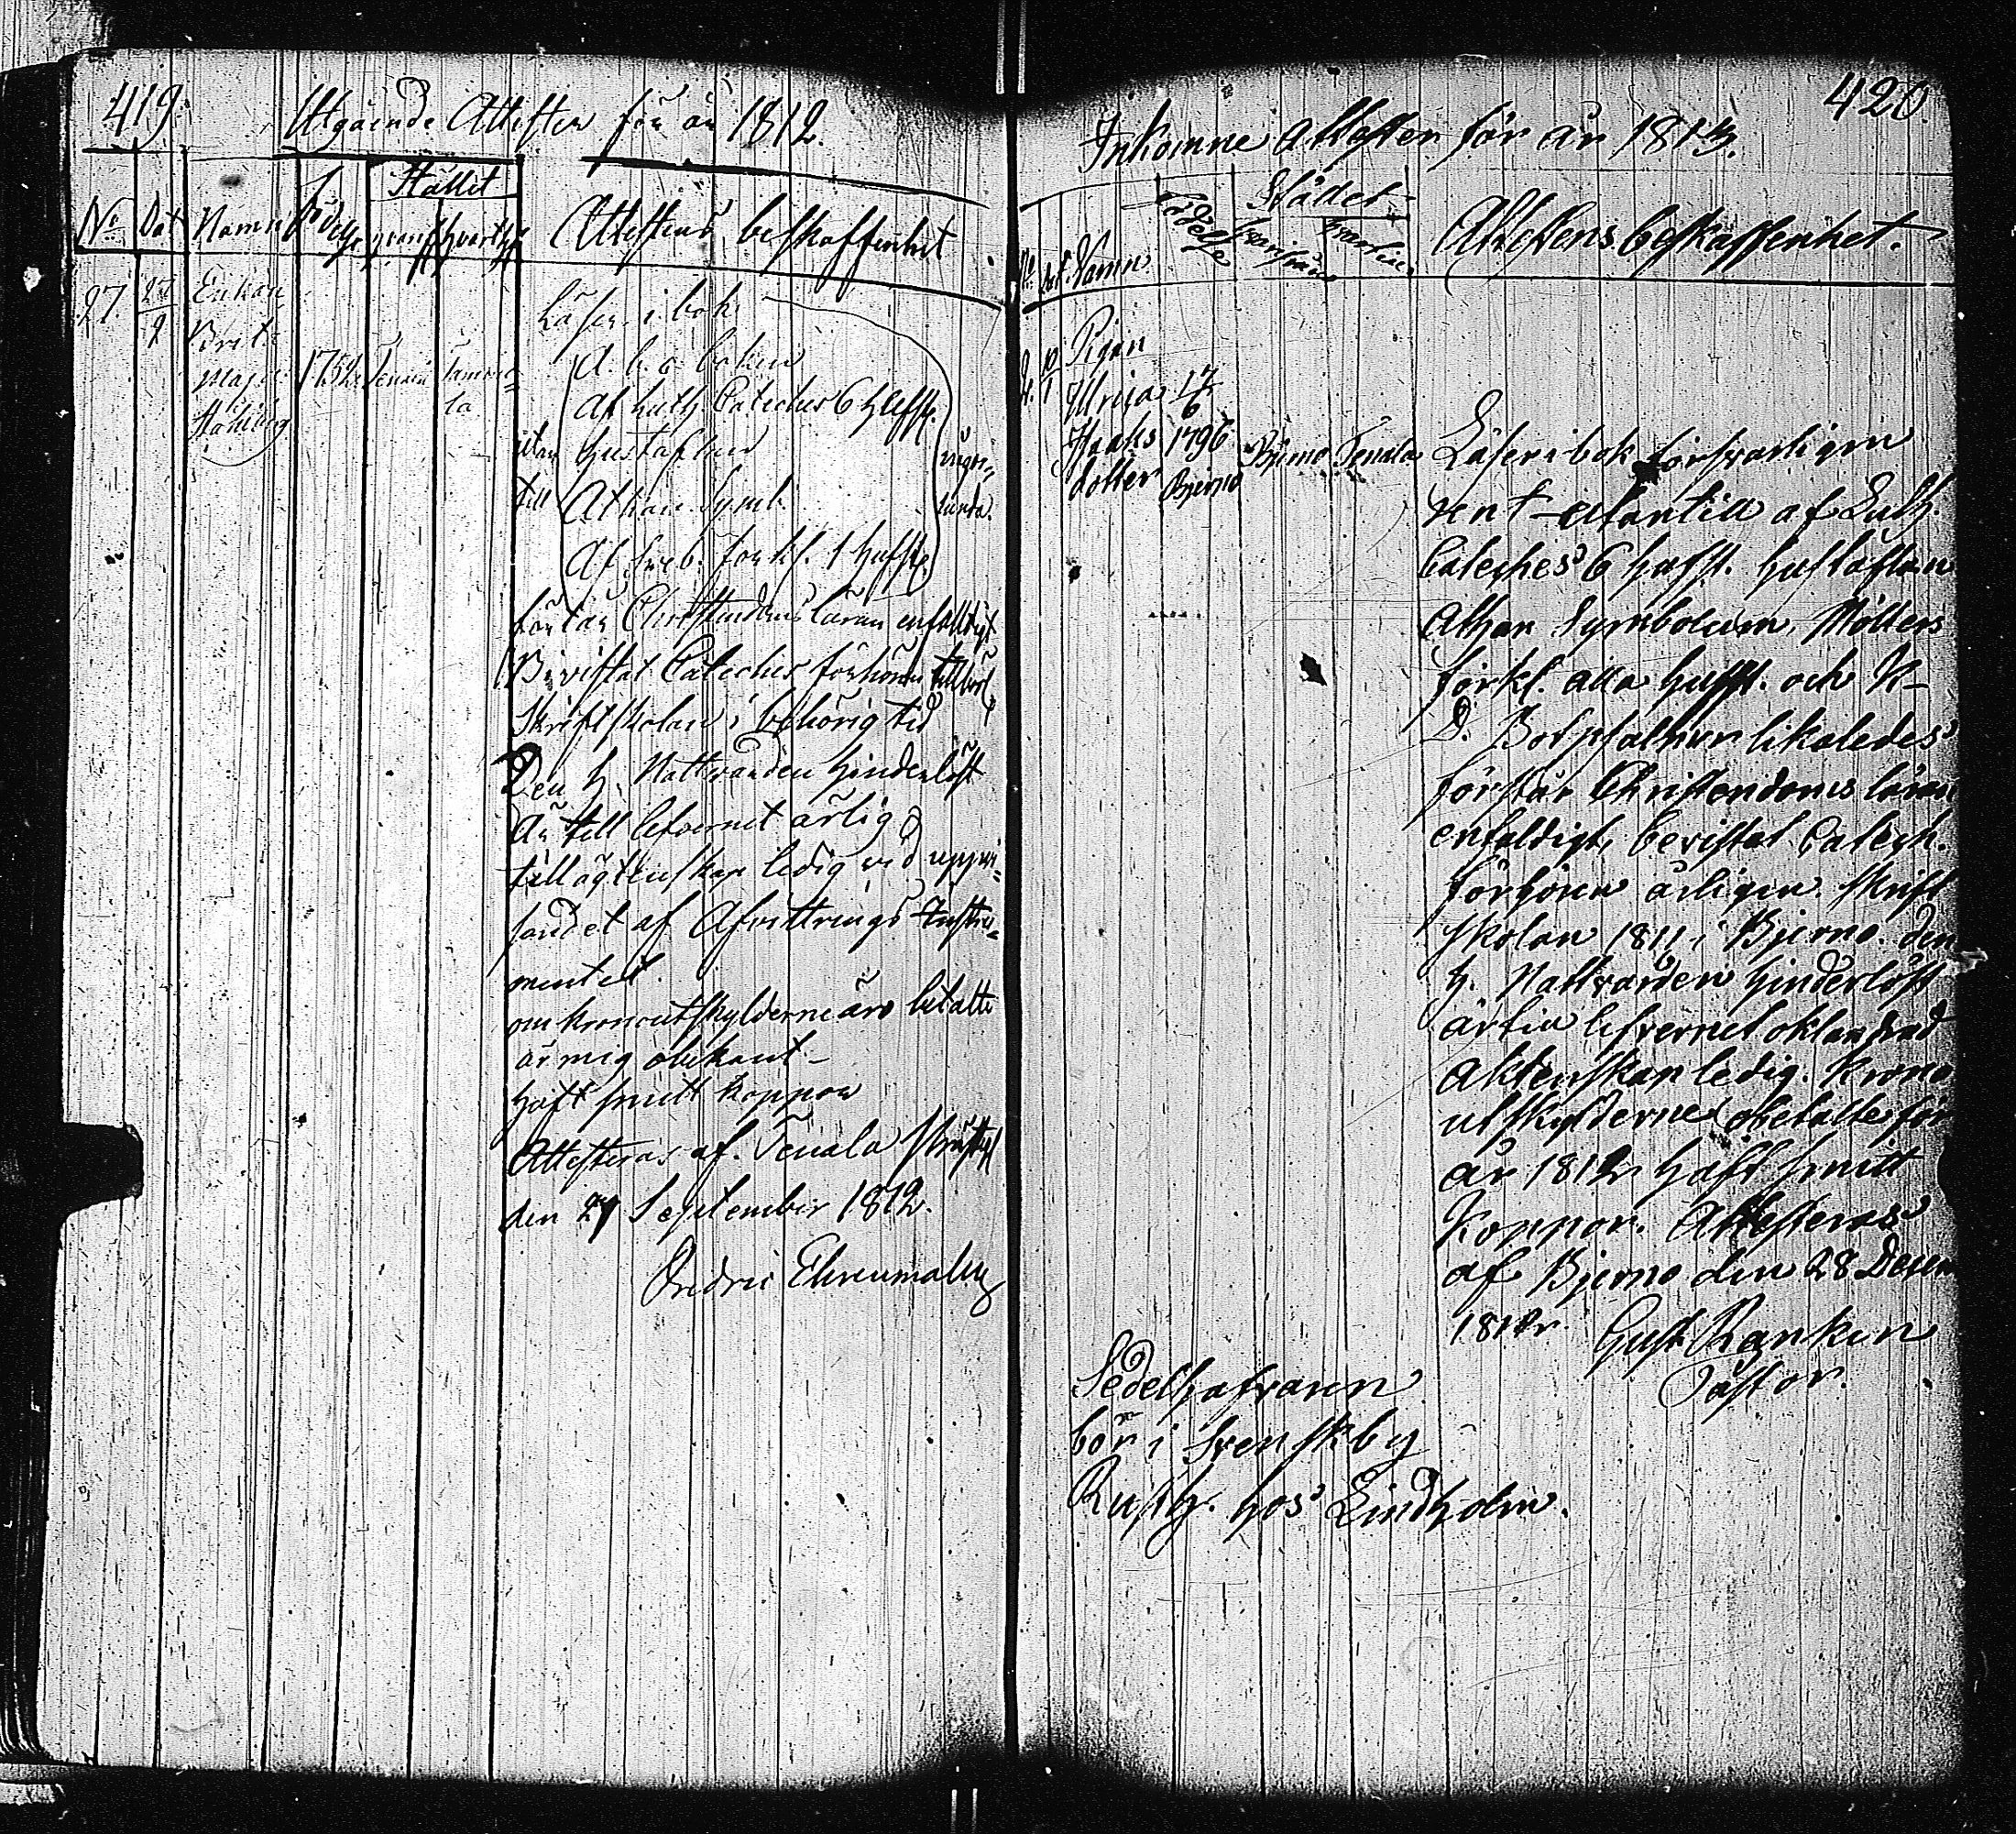 419.
Utgående Attester för år 1812.
Stället
No Dat Namn Födelse hvarifr hvarthän
Attestens beskaffenhet
27. 27/9 Enkan
Brita
Maja
Stålberg
1752. Tenala
Läser i bok
A. b. c. boken
Af Luth. Cateches 6 Hufst.
utan Hustaflan
till Athan. Symb.
Af Sveb. förkl. 1 Hufst.
förstår Christendomsläran enfaldigt
Bevistat Cateches förhören
Skriftskolan i behörig tid
Den H. Nattvarden hinderlöst
Är till lefvernet ärlig
till ägtenskap ledig vid uppvi=
sandet af Afvittrings Instru=
mentet.
om Kronoutskylderne äro betalte
är mig obekant
Haft smitt Koppor
Attesteras af Tenala
den 27 September 1812.
Ehrenmalm
420.
Inkomne Attester för år 1813.
Städet
No Dat. Namn Födelse hvarifrån hvarthin
Attestens beskaffenhet.
Pigan
Ulrica 17/6
Isaks 1796
dotter Bjerno
Bjerno Tenala
Läser i bok försvarligen
rent utantill af Luth.
Cateches 6 hufst. hustaflan
Athan Symbolum, Möllers
förkl. alla hufst. och N-
D. Botpsalmer likaledes
förstår Christendoms läran
enfaldigt, bevistat Catech.
förhören årligen. Skrift
skolan 1811 i Bjerno. den
H. Nattvarden hinderlöst
är till lefvernet oklandrad
Aktenskap ledig. Krono
utskylderne obetalte för
år 1812 haft smitt
Koppor. Attesteras
af Bjerno den 28 Decem
1812. Gust. Rankin
Pastor.
Sedelhafvaren
bör i Svenskby
Rusth. hos Lindholm.